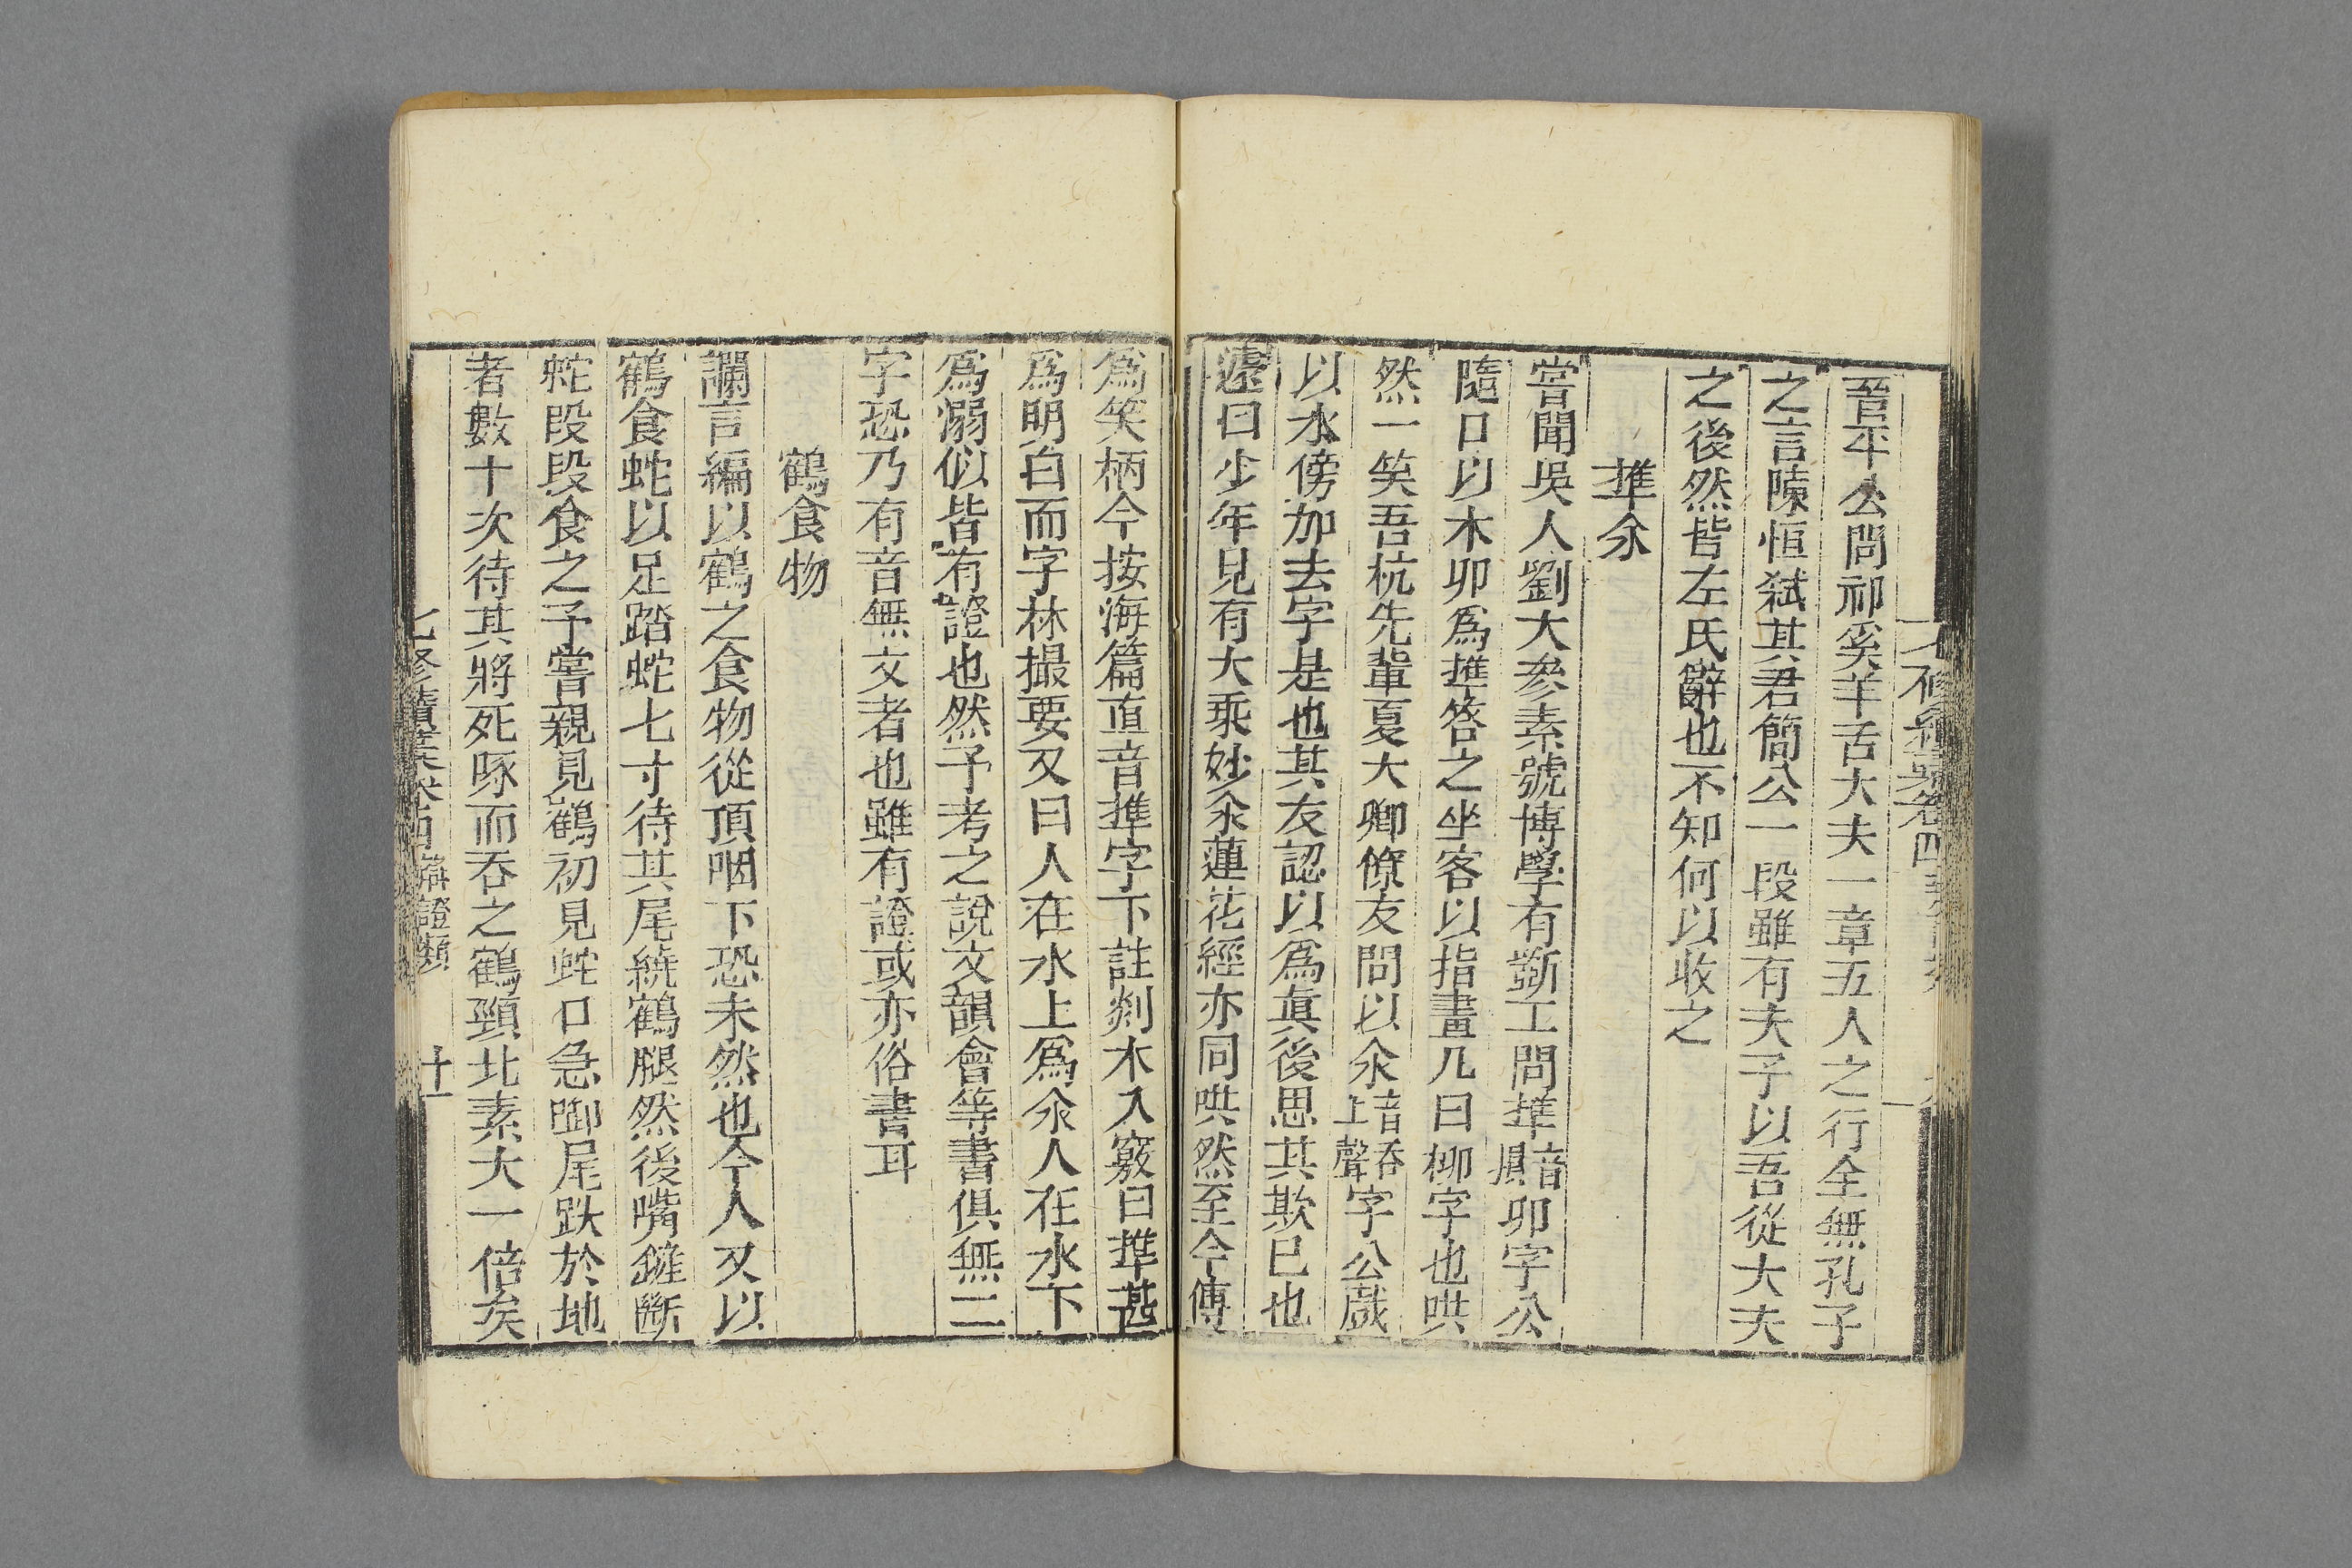 晉平公問祁奚羊舌大夫一章五人之行全無孔子
之言陳恒弑其君簡公一段雖有夫子以吾從大夫
之後然皆左氏辭也不知何以收之
榫氽
嘗聞吳人劉大參素號博學有斵工問榫音損卯字公
隨口以木卯為榫答之坐客以指畫几曰柳字也哄
然一笑吾杭先輩夏大卿僚友問以氽音吞上聲字公戲
以水傍加去字是也其友認以為真後思其欺已也
遽曰少年見有大乘妙氽蓮花經亦同哄然至今傳
為笑柄今按海篇直音榫字下註剡木入竅曰榫甚
為明白而字林撮要又曰人在水上為氽人在水下
為溺似皆有證也然予考之說文韻會等書俱無二
字恐乃有音無文者也雖有證或亦俗書耳
鶴食物
讕言編以鶴之食物從頂咽下恐未然也今人又以
鶴食蛇以足踏蛇七寸待其尾繞鶴腿然後嘴鏦斷
蛇段段食之予嘗親見鶴初見蛇口急啣尾跌於地
者數十次待其將死啄而吞之鶴頸比素大一倍矣
七修續藁卷四 辯證類 十一